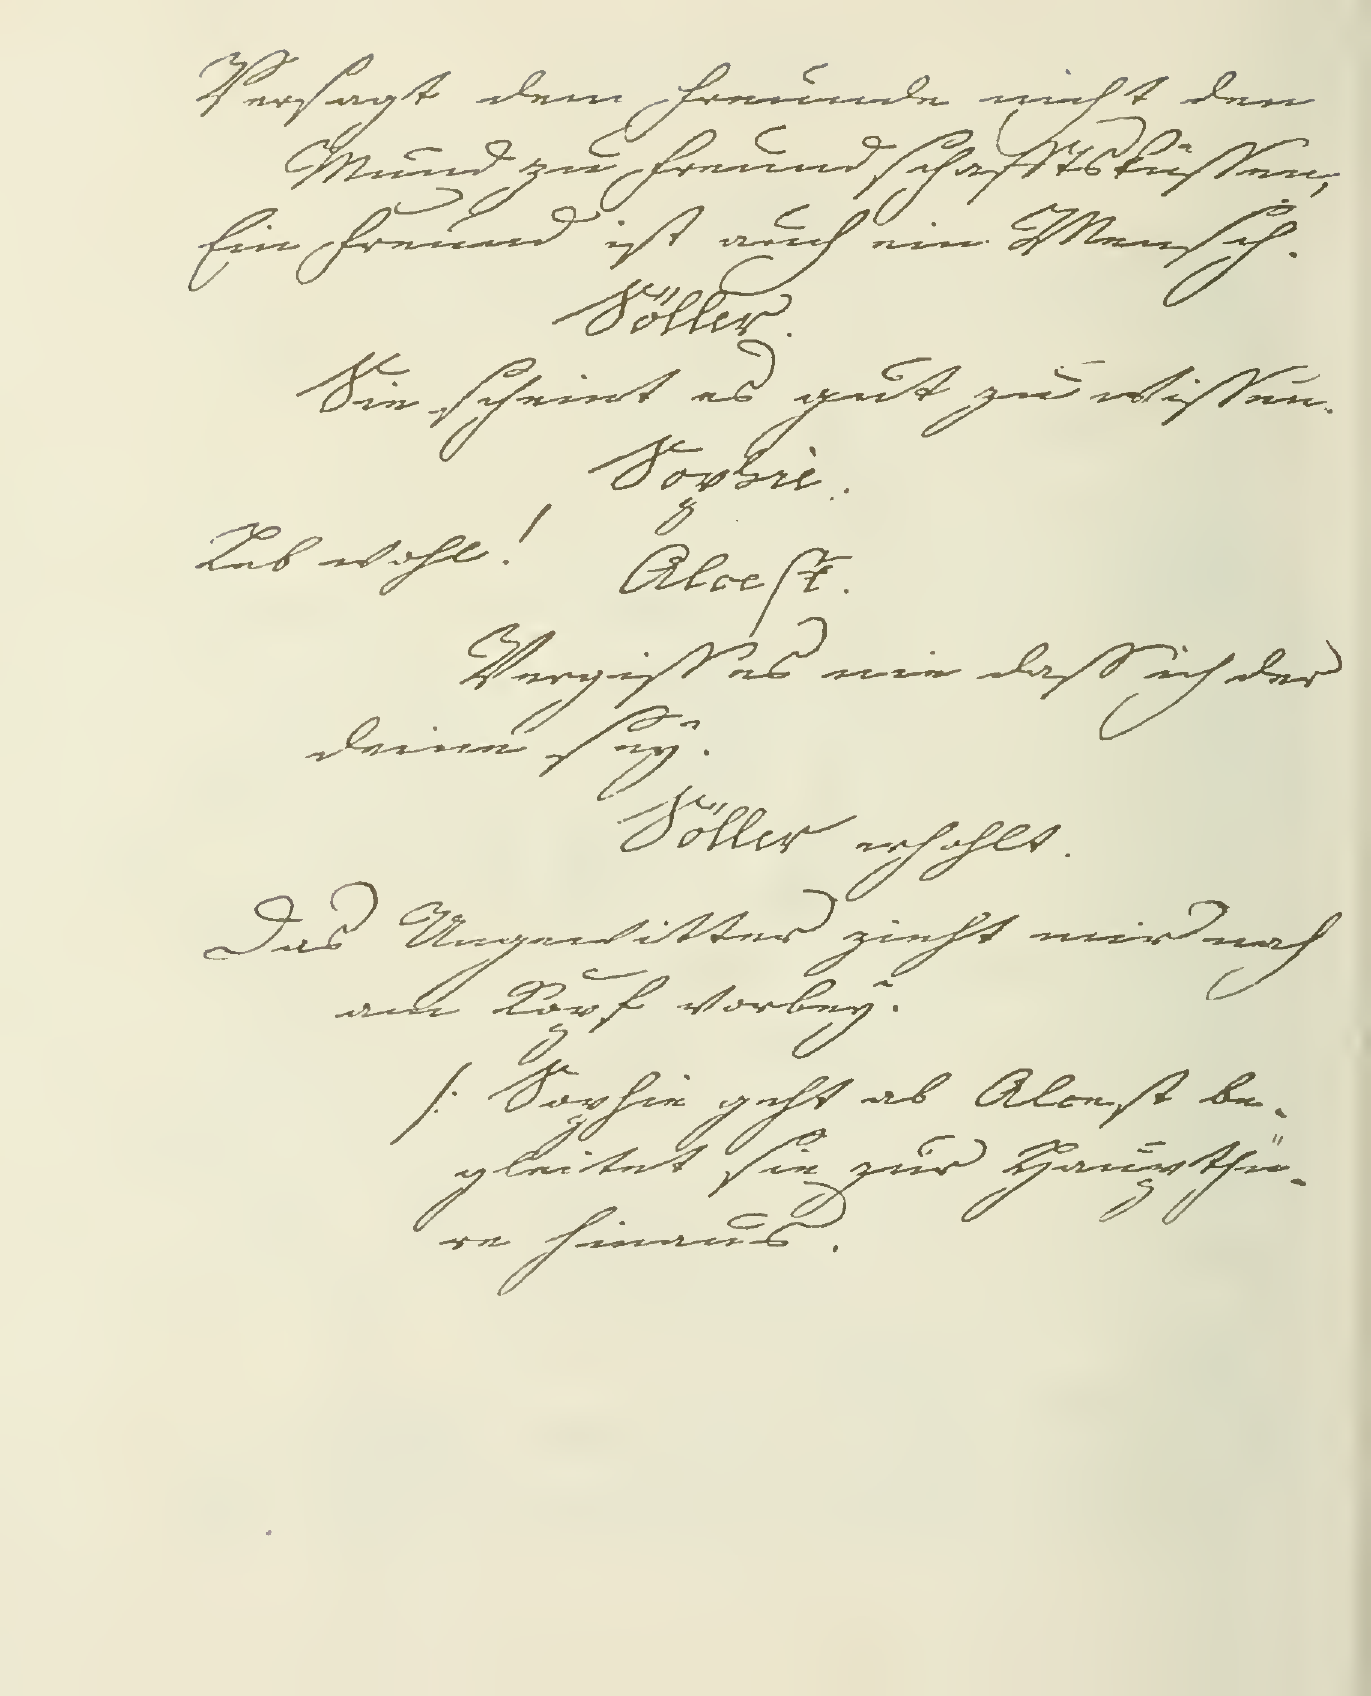 Versagt dem Freunde nicht den
Mund zu Freundschafftsküssen,
Ein Freund ist auch ein Mensch.
Söller.
Sie scheint es gut zu wissen.
Sophie.
Leb wohl!
Alcest.
Vergiss es nie dass ich der
deine sey.
Söller erhohlt.
Das Ungewitter zieht mir nah
am Kopf vorbey.
/: Sophie geht ab Alcest be-
gleitet sie zur Haupthü-
re hinaus.